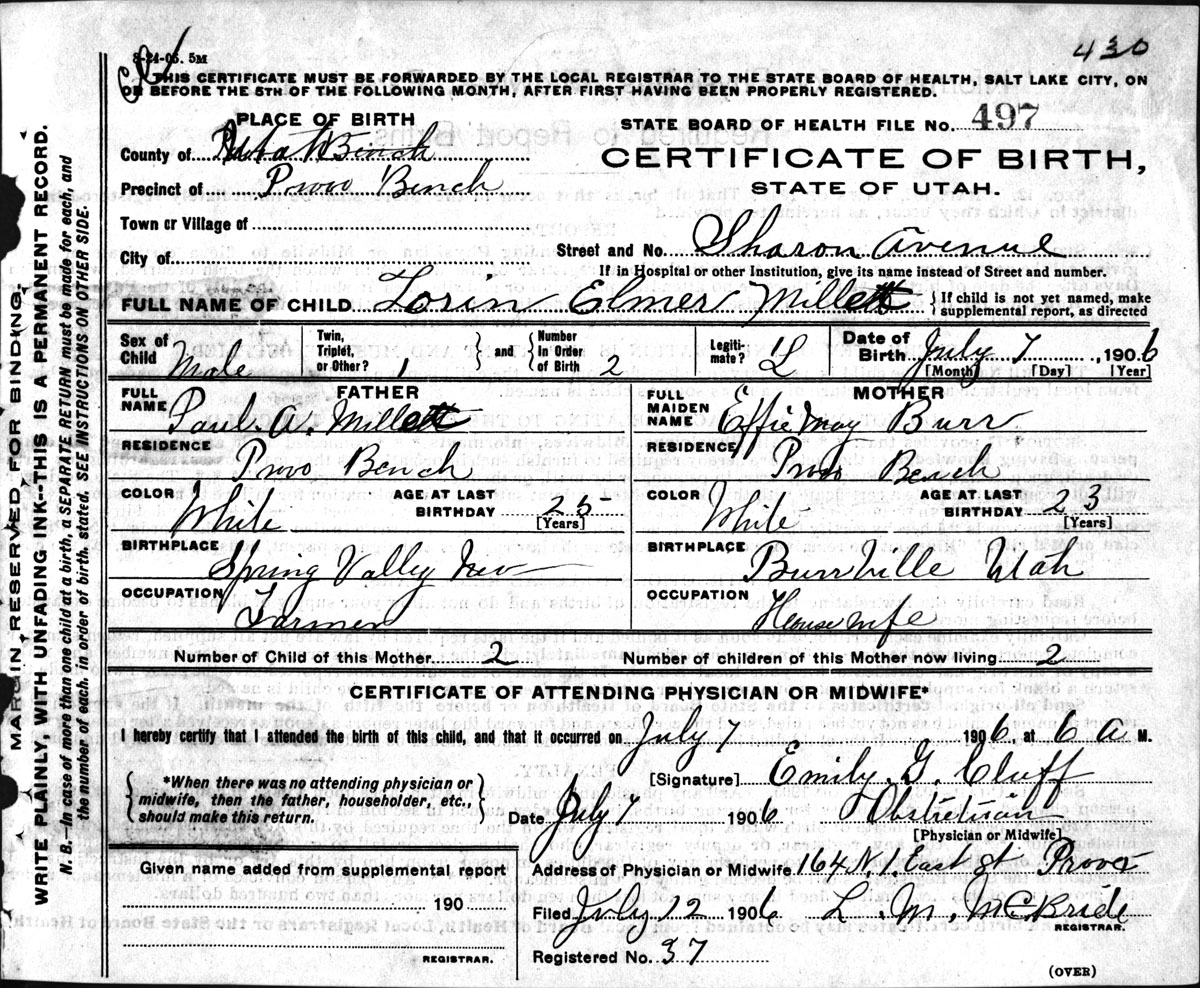 430
3-24-05. 5M
THIS CERTIFICATE MUST BE FORWARDED BY THE LOCAL REGISTRAR TO THE STATE BOARD OF HEALTH, SALT LAKE CITY, ON
OR BEFORE THE 5TH OF THE FOLLOWING MONTH, AFTER FIRST HAVING BEEN PROPERLY REGISTERED.
PLACE OF BIRTH
STATE BOARD OF HEALTH FILE No. 497
County of Bench
CERTIFICATE OF BIRTH,
Precinct of Provo Bench
STATE OF UTAH.
Town or Village of
Street and No. Sharon Avenue
City of
If in Hospital or other Institution, give its name instead of Street and number.
FULL NAME OF CHILD Lorin Elmer Millett { If child is not yet named, make supplemental report, as directed
Sex of Child Male Twin, Triplet, or Other? 1 } and { Number In Order of Birth 2 Legiti-mate? L Date of Birth July 7, 1906
[Month] [Day] [Year]
FATHER
FULL NAME Paul. A. Millett
RESIDENCE Provo Bench
COLOR White AGE AT LAST BIRTHDAY 25
[Years]
BIRTHPLACE Spring Valley Nev
OCCUPATION Farmer
MOTHER
FULL MAIDEN NAME Effie May Burr
RESIDENCE Provo Bench
COLOR White AGE AT LAST BIRTHDAY 23
[Years]
BIRTHPLACE Burrville Utah
OCCUPATION Housewife
Number of Child of this Mother 2 Number of children of this Mother now living 2
CERTIFICATE OF ATTENDING PHYSICIAN OR MIDWIFE*
I hereby certify that I attended the birth of this child, and that it occurred on July 7 1906, at 6 a M.
{ *When there was no attending physician or midwife, then the father, householder, etc., should make this return. }
[Signature] Emily. G. Cluff
Date July 7 1906 Obstetrician
[Physician or Midwife]
Address of Physician or Midwife 164 N. 1. East St Provo
Given name added from supplemental report
190
REGISTRAR.
Filed July 12 1906 L. M. McBride
REGISTRAR.
Registered No. 37
(OVER)
MARGIN RESERVED FOR BINDING.
WRITE PLAINLY, WITH UNFADING INK--THIS IS A PERMANENT RECORD.
N. B.—In case of more than one child at a birth, a SEPARATE RETURN must be made for each, and
the number of each, in order of birth, stated. SEE INSTRUCTIONS ON OTHER SIDE.